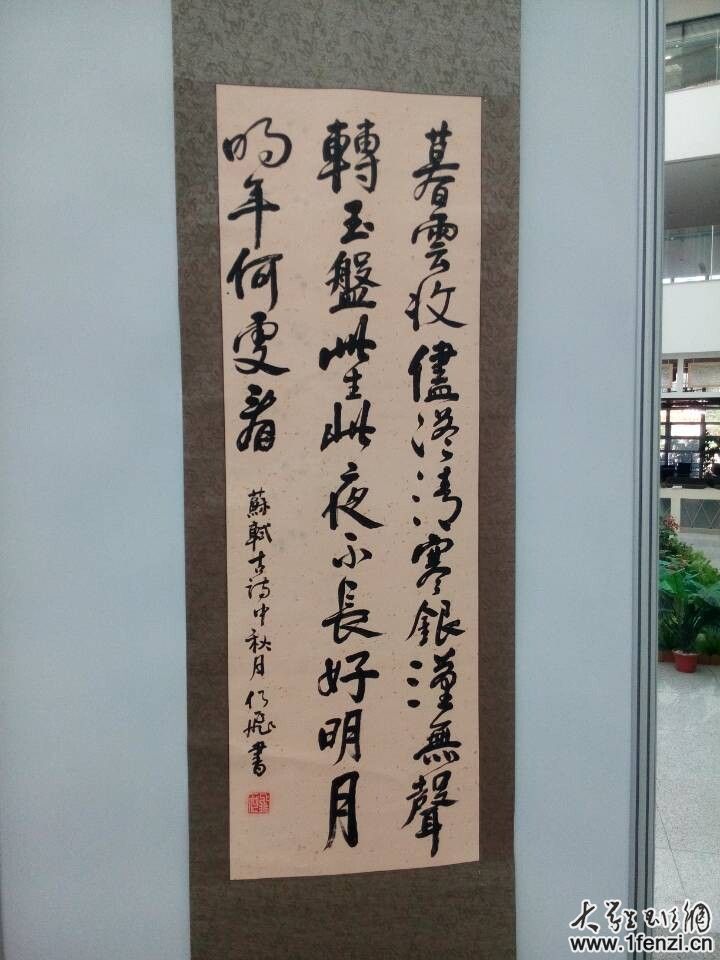 暮雲收儘溢清寒銀漢無聲
轉玉盤此生此夜不長好明月
明年何雯看
蘇軾古詩中秋月 仁飛書
大学生书法网
www.1fenzi.cn